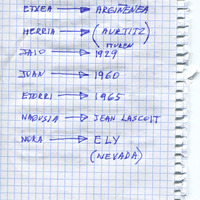 ETXEA → ARGIÑENEA
HERRIA → (AURTITZ)
ITUREN
JAIO → 1929
JUAN → 1960
ETORRI → 1965
NAGUSIA → JEAN LASCOIT
NORA → ELY
(NEVADA)